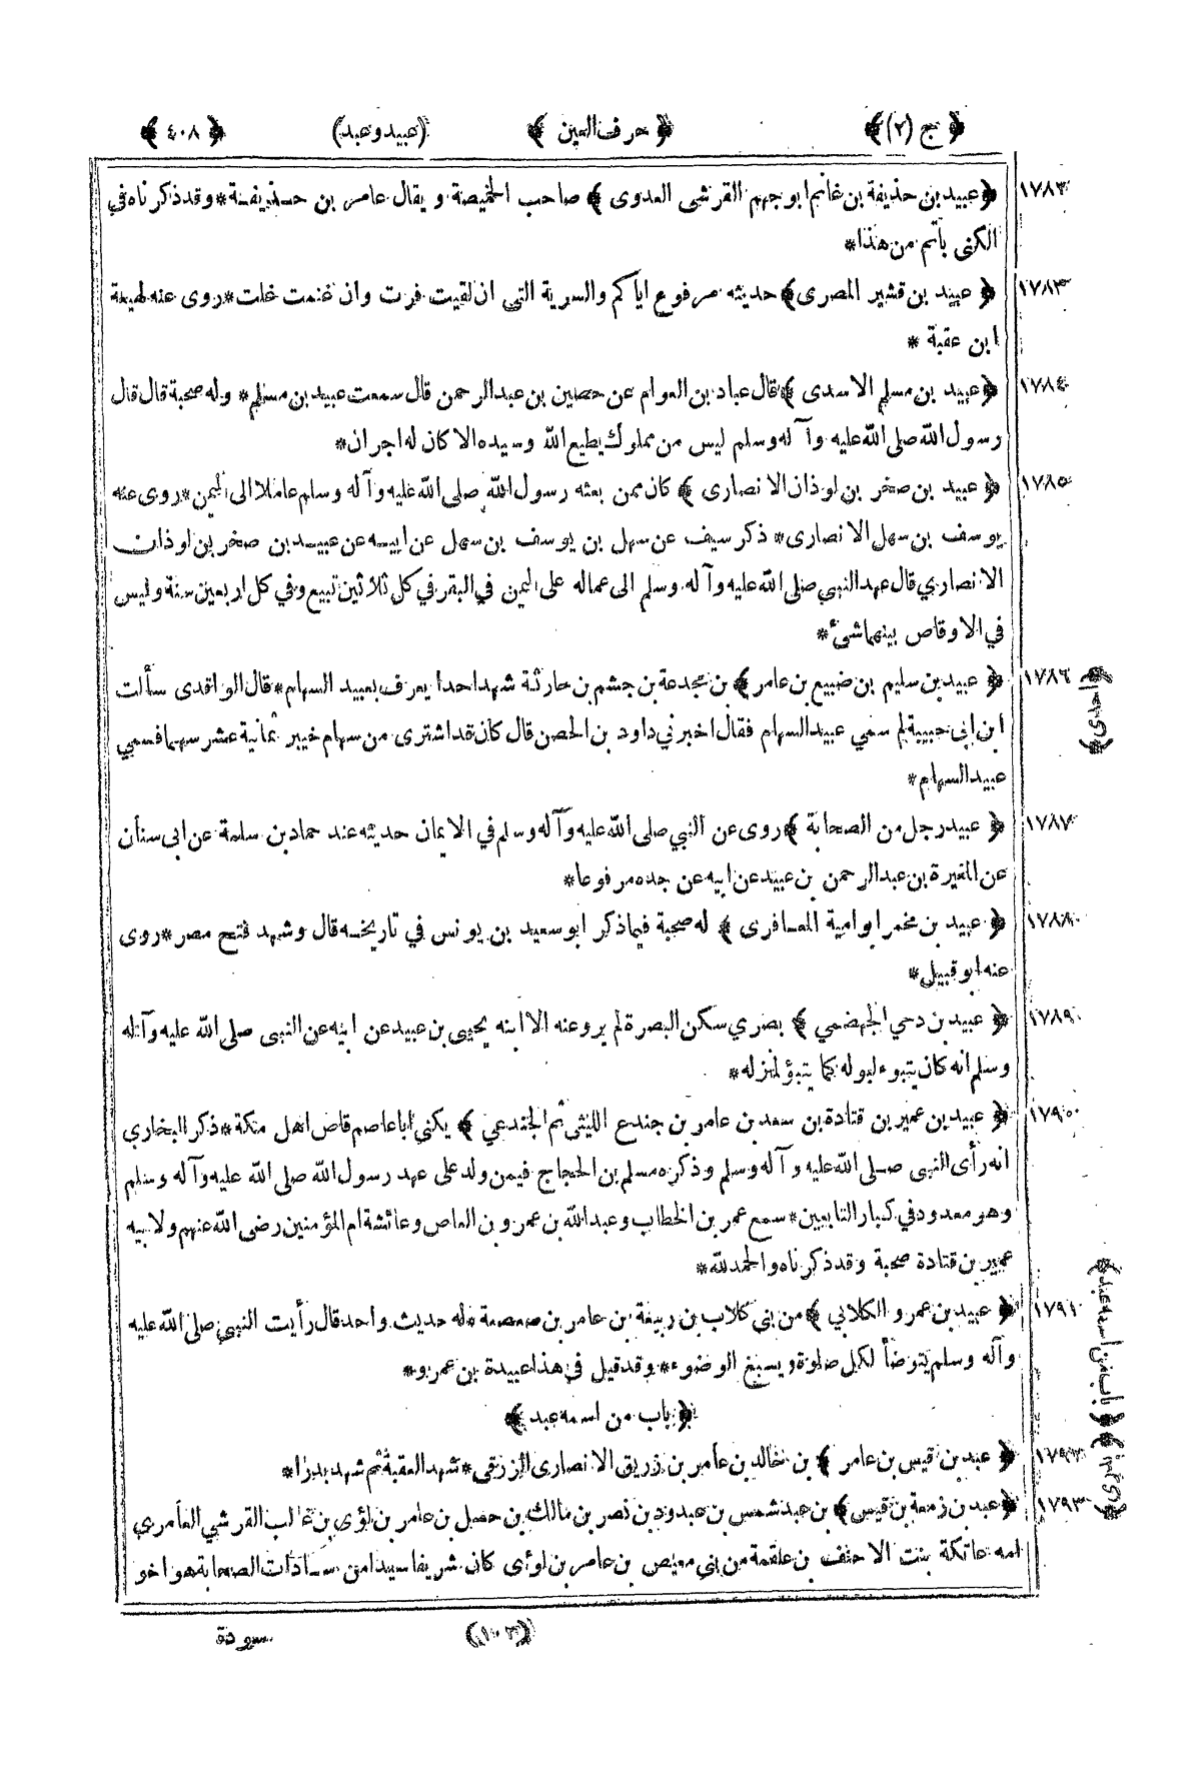 ﴿ ج (٢) ﴾ ﴿ حرف العين ﴾ (عبيد وعبد) ﴿ ٤٠٨ ﴾
١٧٨٢ ﴿ عبيد بن حذيفة بن غانم ابو جهم القرشى العدوى ﴾ صاحب الخميصة ويقال عامر بن حذيفة * وقد ذكرناه في
الكنى بأتم من هذا *
١٧٨٣ ﴿ عبيد بن قشير المصرى ﴾ حديثه مرفوع اياكم والسرية التى ان لقيت فرت وان غنمت غلت * روى عنه لهيعة
ابن عقبة *
١٧٨٤ ﴿ عبيد بن مسلم الاسدى ﴾ قال عباد بن العوام عن حصين بن عبد الرحمن قال سمعت عبيد بن مسلم * وله صحبة قال قال
رسول الله صلى الله عليه وآله وسلم ليس من مملوك يطيع الله وسيده الا كان له اجران *
١٧٨٥ ﴿ عبيد بن صخر بن لوذان الانصارى ﴾ كان ممن بعثه رسول الله صلى الله عليه وآله وسلم عاملا الى اليمن * روى عنه
يوسف بن سهل الانصارى * ذكر سيف عن سهل بن يوسف بن سهل عن ابيه عن عبيد بن صخر بن لوذان
الانصاري قال عهد النبي صلى الله عليه وآله وسلم الى عماله على اليمن في البقر في كل ثلاثين تبيع وفي كل اربعين سنة وليس
في الاوقاص بينهما شئ *
١٧٨٦ ﴿ عبيد بن سليم بن ضبيع بن عامر ﴾ بن مجدعة بن جشم بن حارثة شهد احدا يعرف بعبيد السهام * قال الواقدى سألت
ابن ابي حبيبة لم سمي عبيد السهام فقال اخبرني داود بن الحصن قال كان قد اشترى من سهام خيبر ثمانية عشر سهما فسمي
عبيد السهام *
١٧٨٧ ﴿ عبيد رجل من الصحابة ﴾ روى عن النبي صلى الله عليه وآله وسلم في الايمان حديثه عند حماد بن سلمة عن ابى سنان
عن المغيرة بن عبد الرحمن بن عبيد عن ابيه عن جده مرفوعا *
١٧٨٨ ﴿ عبيد بن مخمر ابو امية المعافرى ﴾ له صحبة فيما ذكر ابو سعيد بن يونس في تاريخه قال وشهد فتح مصر * روى
عنه ابو قبيل *
١٧٨٩ ﴿ عبيد بن دحي الجهضمي ﴾ بصري سكن البصرة لم يرو عنه الا ابنه يحيى بن عبيد عن ابيه عن النبى صلى الله عليه وآله
وسلم انه كان يتبوء لبوله كما يتبؤ لمنزله *
١٧٩٠ ﴿ عبيد بن عمير بن قتادة بن سعد بن عامر بن جندع الليثى ثم الجندعي ﴾ يكنى ابا عاصم قاص اهل مكة * ذكر البخاري
انه رأى النبى صلى الله عليه وآله وسلم وذكره مسلم بن الحجاج فيمن ولد على عهد رسول الله صلى الله عليه وآله وسلم
وهو معدود في كبار التابعين * سمع عمر بن الخطاب وعبد الله بن عمرو بن العاص وعائشة ام المؤمنين رضى الله عنهم ولابيه
عمير بن قتادة صحبة وقد ذكرناه والحمد لله *
١٧٩١ ﴿ عبيد بن عمرو الكلابي ﴾ من بني كلاب بن ربيعة بن عامر بن صعصعة وله حديث واحد قال رأيت النبي صلى الله عليه
وآله وسلم يتوضأ لكل صلوة ويسبغ الوضوء * وقد قيل في هذا عبيدة بن عمرو *
﴿ باب من اسمه عبد ﴾
١٧٩٢ ﴿ عبد بن قيس بن عامر ﴾ بن خالد بن عامر بن زريق الانصارى الزرقى * شهد العقبة ثم شهد بدرا *
١٧٩٣ ﴿ عبد بن زمعة بن قيس ﴾ بن عبد شمس بن عبدود بن نصر بن مالك بن حسل بن عامر بن لؤى بن غالب القرشي العامري
امه عاتكة بنت الاحنف بن علقمة من بني معيص بن عامر بن لوأى كان شريفا سيدا من سادات الصحابة هو اخو
سودة
﴿ باب من اسمه عبد ﴾